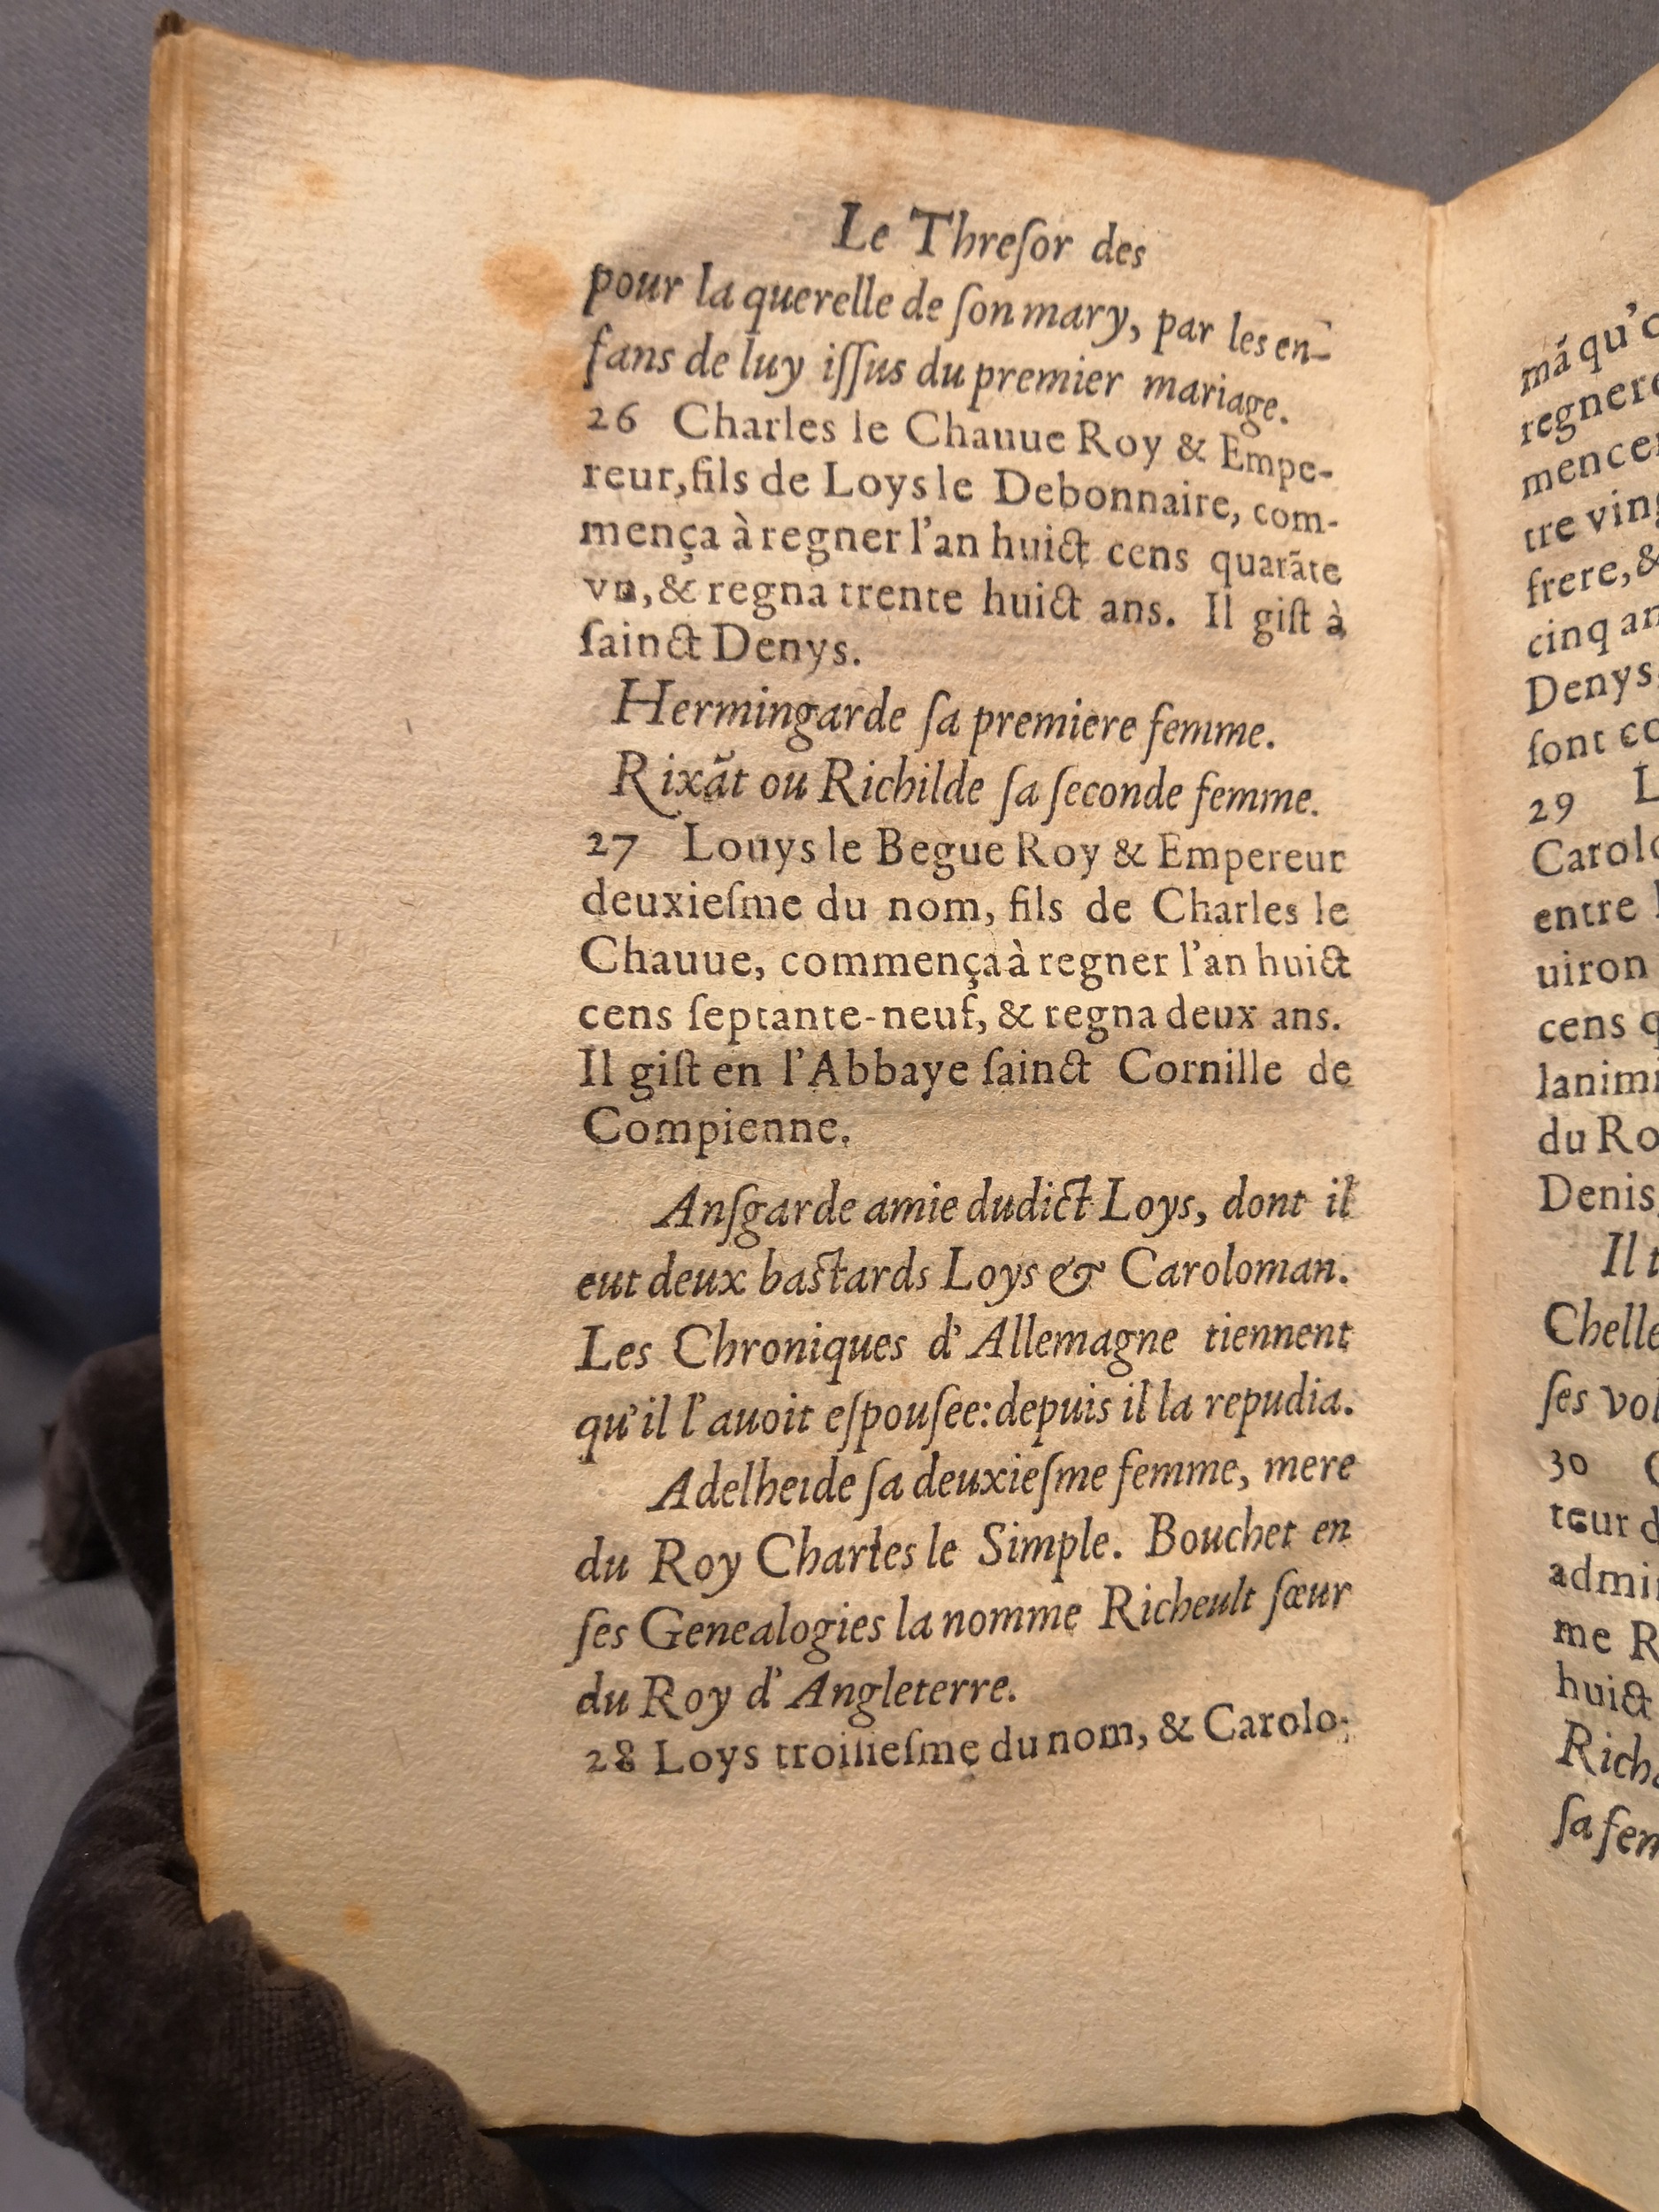 Le Threſor des
pour la querelle de ſon mary, par les en-
fans de luy iſſus du premier mariage.
26 Charles le Chauue Roy & Empe-
reur, fils de Loys le Debonnaire, com-
mença à regner l'an huict cens quarãte
vn, & regna trente huict ans. Il giſt à
ſainct Denys.
Hermingarde ſa premiere femme.
Rixãt ou Richilde ſa ſeconde femme.
27 Louys le Begue Roy & Empereur
deuxieſme du nom, fils de Charles le
Chauue, commença à regner l'an huict
cens ſeptante-neuf, & regna deux ans.
Il giſt en l'Abbaye ſainct Cornille de
Compienne.
Anſgarde amie dudict Loys, dont il
eut deux baſtards Loys & Caroloman.
Les Chroniques d'Allemagne tiennent
qu'il l'auoit eſpouſee: depuis il la repudia.
Adelheide ſa deuxieſme femme, mere
du Roy Charles le Simple. Bouchet en
ſes Genealogies la nomme Richeult ſœur
du Roy d'Angleterre.
28 Loys troiſieſme du nom, & Carolo-
mã qu'
regner
tre
frere, &
cinq
Denys
ſont
29
entre
uiron
cens
du
Denis
Il
ſes
30
me
huict
ſa